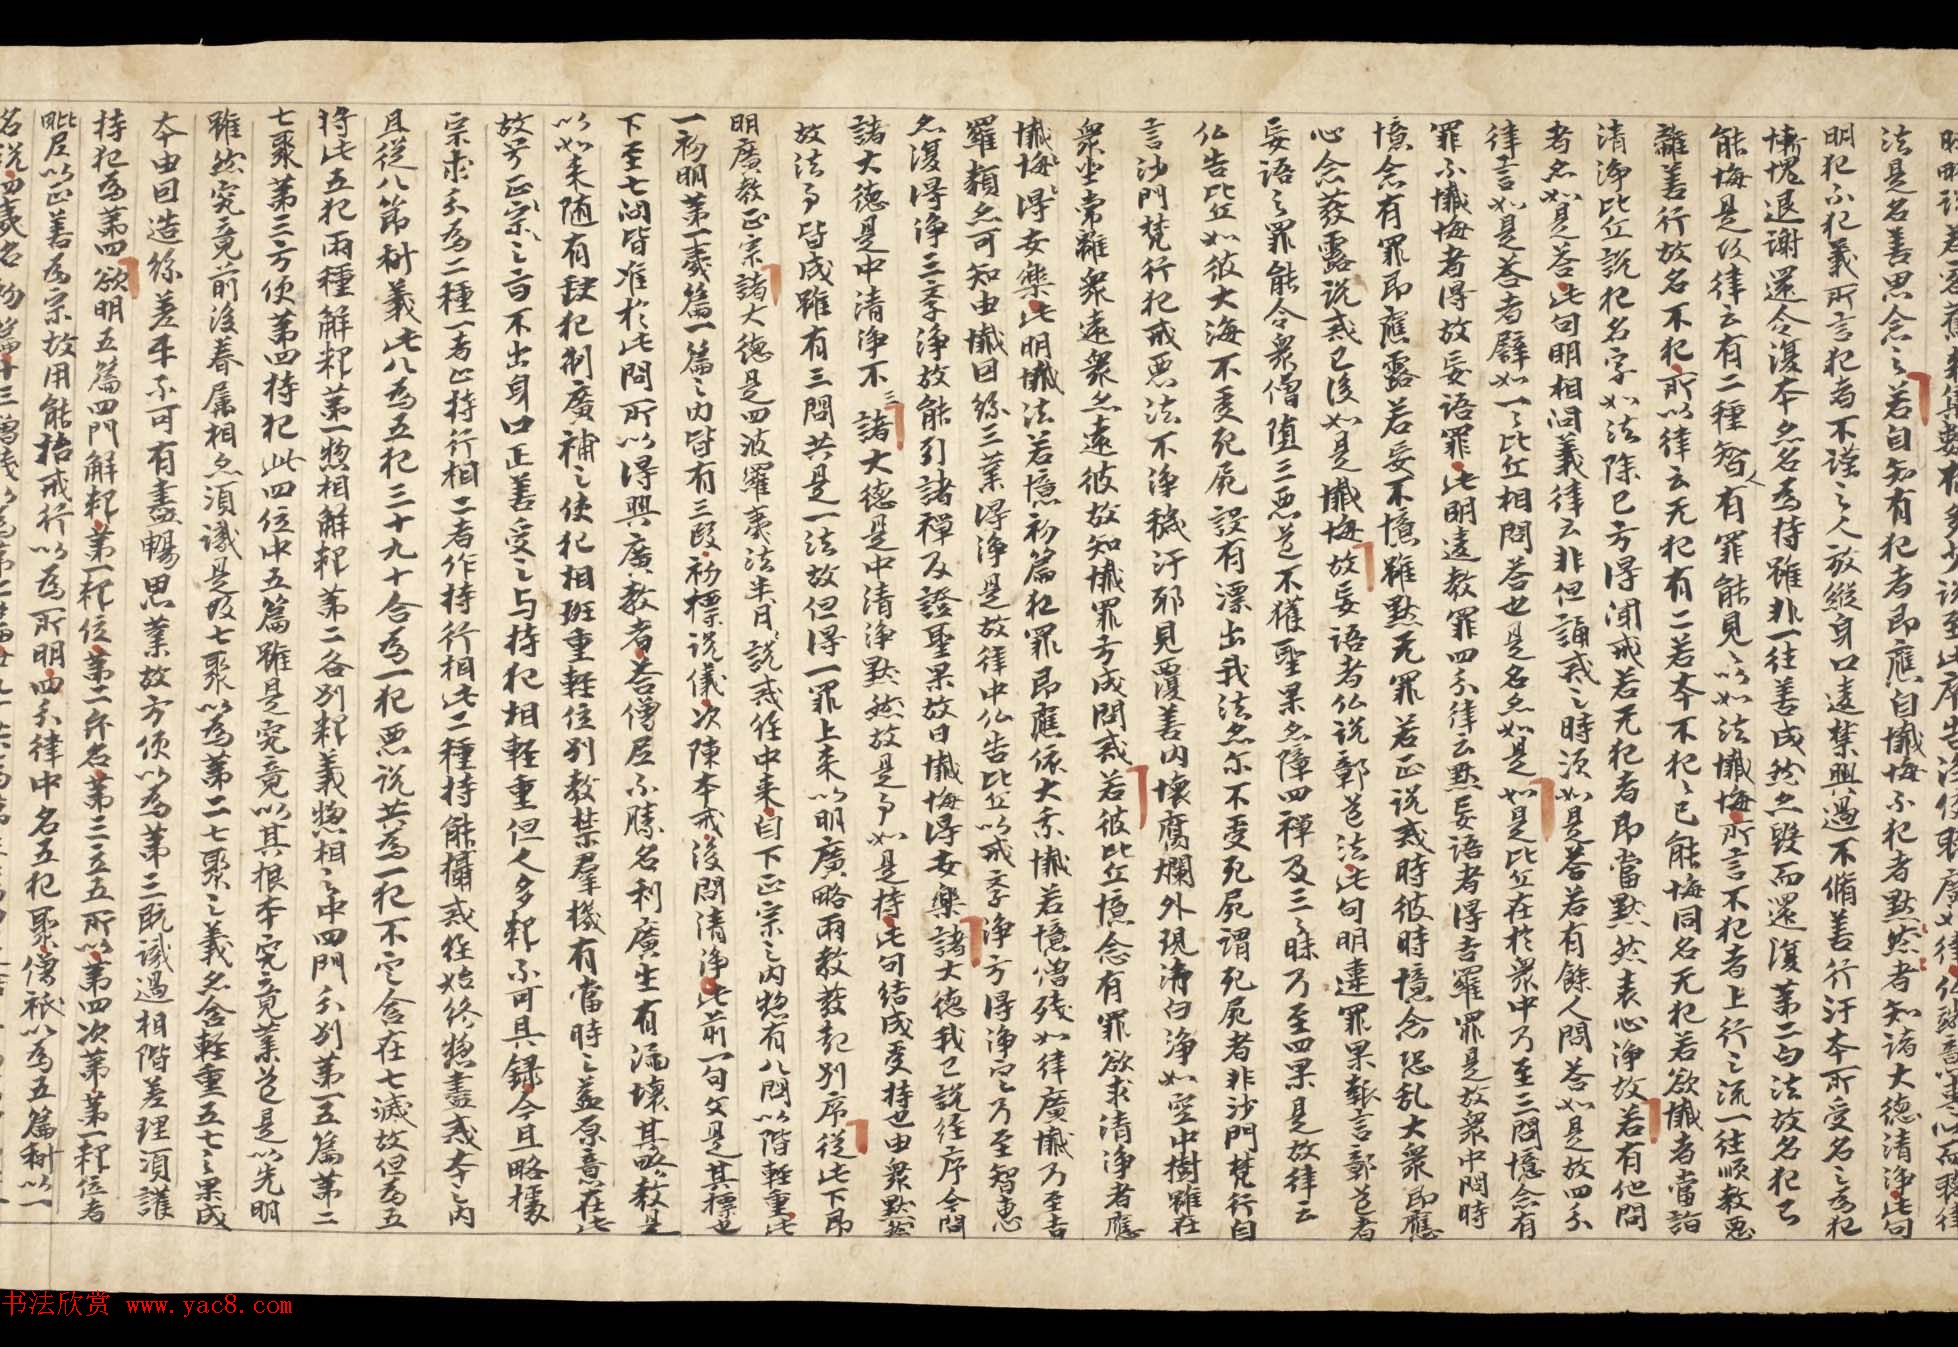 法是名善思念之若自知有犯者即應自懺悔不犯者默然者知諸大德清淨此句
明犯不犯義所言犯者不謹之人放縱身口違禁興過不脩善行汙本所受名之為犯
慚愧退謝還令復本亦名為持雖非一往善成然亦毀而還復第二句法故名犯已
能悔是故律云有二種智人有罪能見見以如法懺悔所言不犯者上行之流一往順教惡
離善行故名不犯所以律云无犯有二若本不犯犯已能悔同名无犯若欲懺者當詣
清淨比丘說犯名字如法除已方得聞戒若无犯者即當默然表心淨故若有他問
者亦如是答此句明相問義律云非但誦戒之時須如是答若有餘人問答如是故四分
律言如是答者譬如一一比丘相問答也是名亦如是如是比丘在於眾中乃至三問憶念有
罪不懺悔者得故妄語罪此明違教罪四分律云默妄語者得吉羅罪是故眾中問時
憶念有罪即應露若妄不憶雖默无罪若正說戒時彼時憶念恐亂大眾即應
心念發露說戒已後如是懺悔故妄語者仏說鄣道法此句明違罪果報言鄣道者
妄語之罪能令眾僧墮三惡道不獲聖果亦障四禪及三三昧乃至四果是故律云
仏告比丘如彼大海不受死屍設有漂出我法亦尔不受死屍謂死屍者非沙門梵行自
言沙門梵行犯戒惡法不淨穢汙耶見覆善內壞腐爛外現清白淨如空中樹雖在
眾坐常離眾遠眾亦遠彼故知懺罪方成問戒若彼比丘憶念有罪欲求清淨者應
懺悔懺悔得安樂此明懺法若憶初篇犯罪即應依大乘懺若憶僧殘如律廣懺乃至吉
羅類亦可知由懺因緣三業得淨是故律中仏告比丘以戒季淨方得淨定乃至智惠
亦復得淨三季淨故能引諸禪及證聖果故曰懺悔得安樂諸大德我已說經序今問
諸大德是中清淨不三諸大德是中清淨默然故是事如是持此句結成受持也由眾默然
故法事皆成雖有三問共是一法故但得一罪上來以明廣略兩教發起別序從此下即
明廣教正宗諸大德是四波羅夷法半月說戒任中來自下正宗之內惣有八問以階輕重此
一初明第一夷篇一篇之內皆有三段初標說儀次陳本戒後問清淨此前一句父是其標也
下至七問皆准於此問所以得興廣教者答僧尼不勝名利廣生有漏壞其略教是
以如來隨有缺犯制廣補之使犯相班重輕位別教禁羣機有當時之益原意在此
故号正宗宗之言不出身口正善受之与持犯相輕重但人多釋不可具録今且略據
宗求分為二種一者止持行相二者作持行相此二種持能攝戒經始終惣盡戒本之內
且從八節科義此八為五犯三十九十合為一犯惡說共為一犯不定含在七滅故但為五
將此五犯兩種解釋第一惣相解釋第二各別釋義惣相之中四門分別第一五篇第二
七聚第三方便第四持犯此四位中五篇雖是究竟以其根本究竟業道是以先明
雖然究竟前後眷屬相亦須識是故七聚以為第二七聚之義名含輕重五七之果成
本由因造緣差互不可有盡暢思業故方便以為第三既識過相階差理須護
持犯為第四欲明五篇四門解釋第一釋位第二弁名第三立五所以第四次第第一釋位者
毗尼以正善為宗故用能招戒行以為所明四分律中名五犯聚僧祇以為五篇科以一
书法欣赏 www.yac8.com